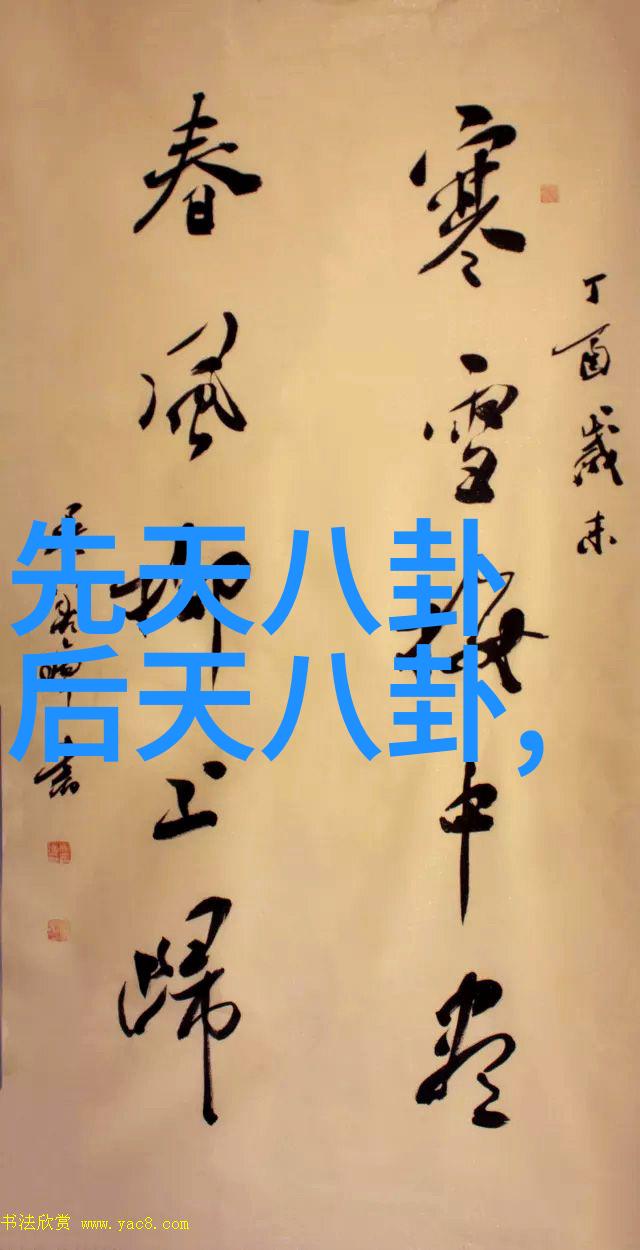 丁酉岁末
寒雪梅中尽
春风柳上归
先天八卦
后天八卦,
书法欣赏 www.yac8.com